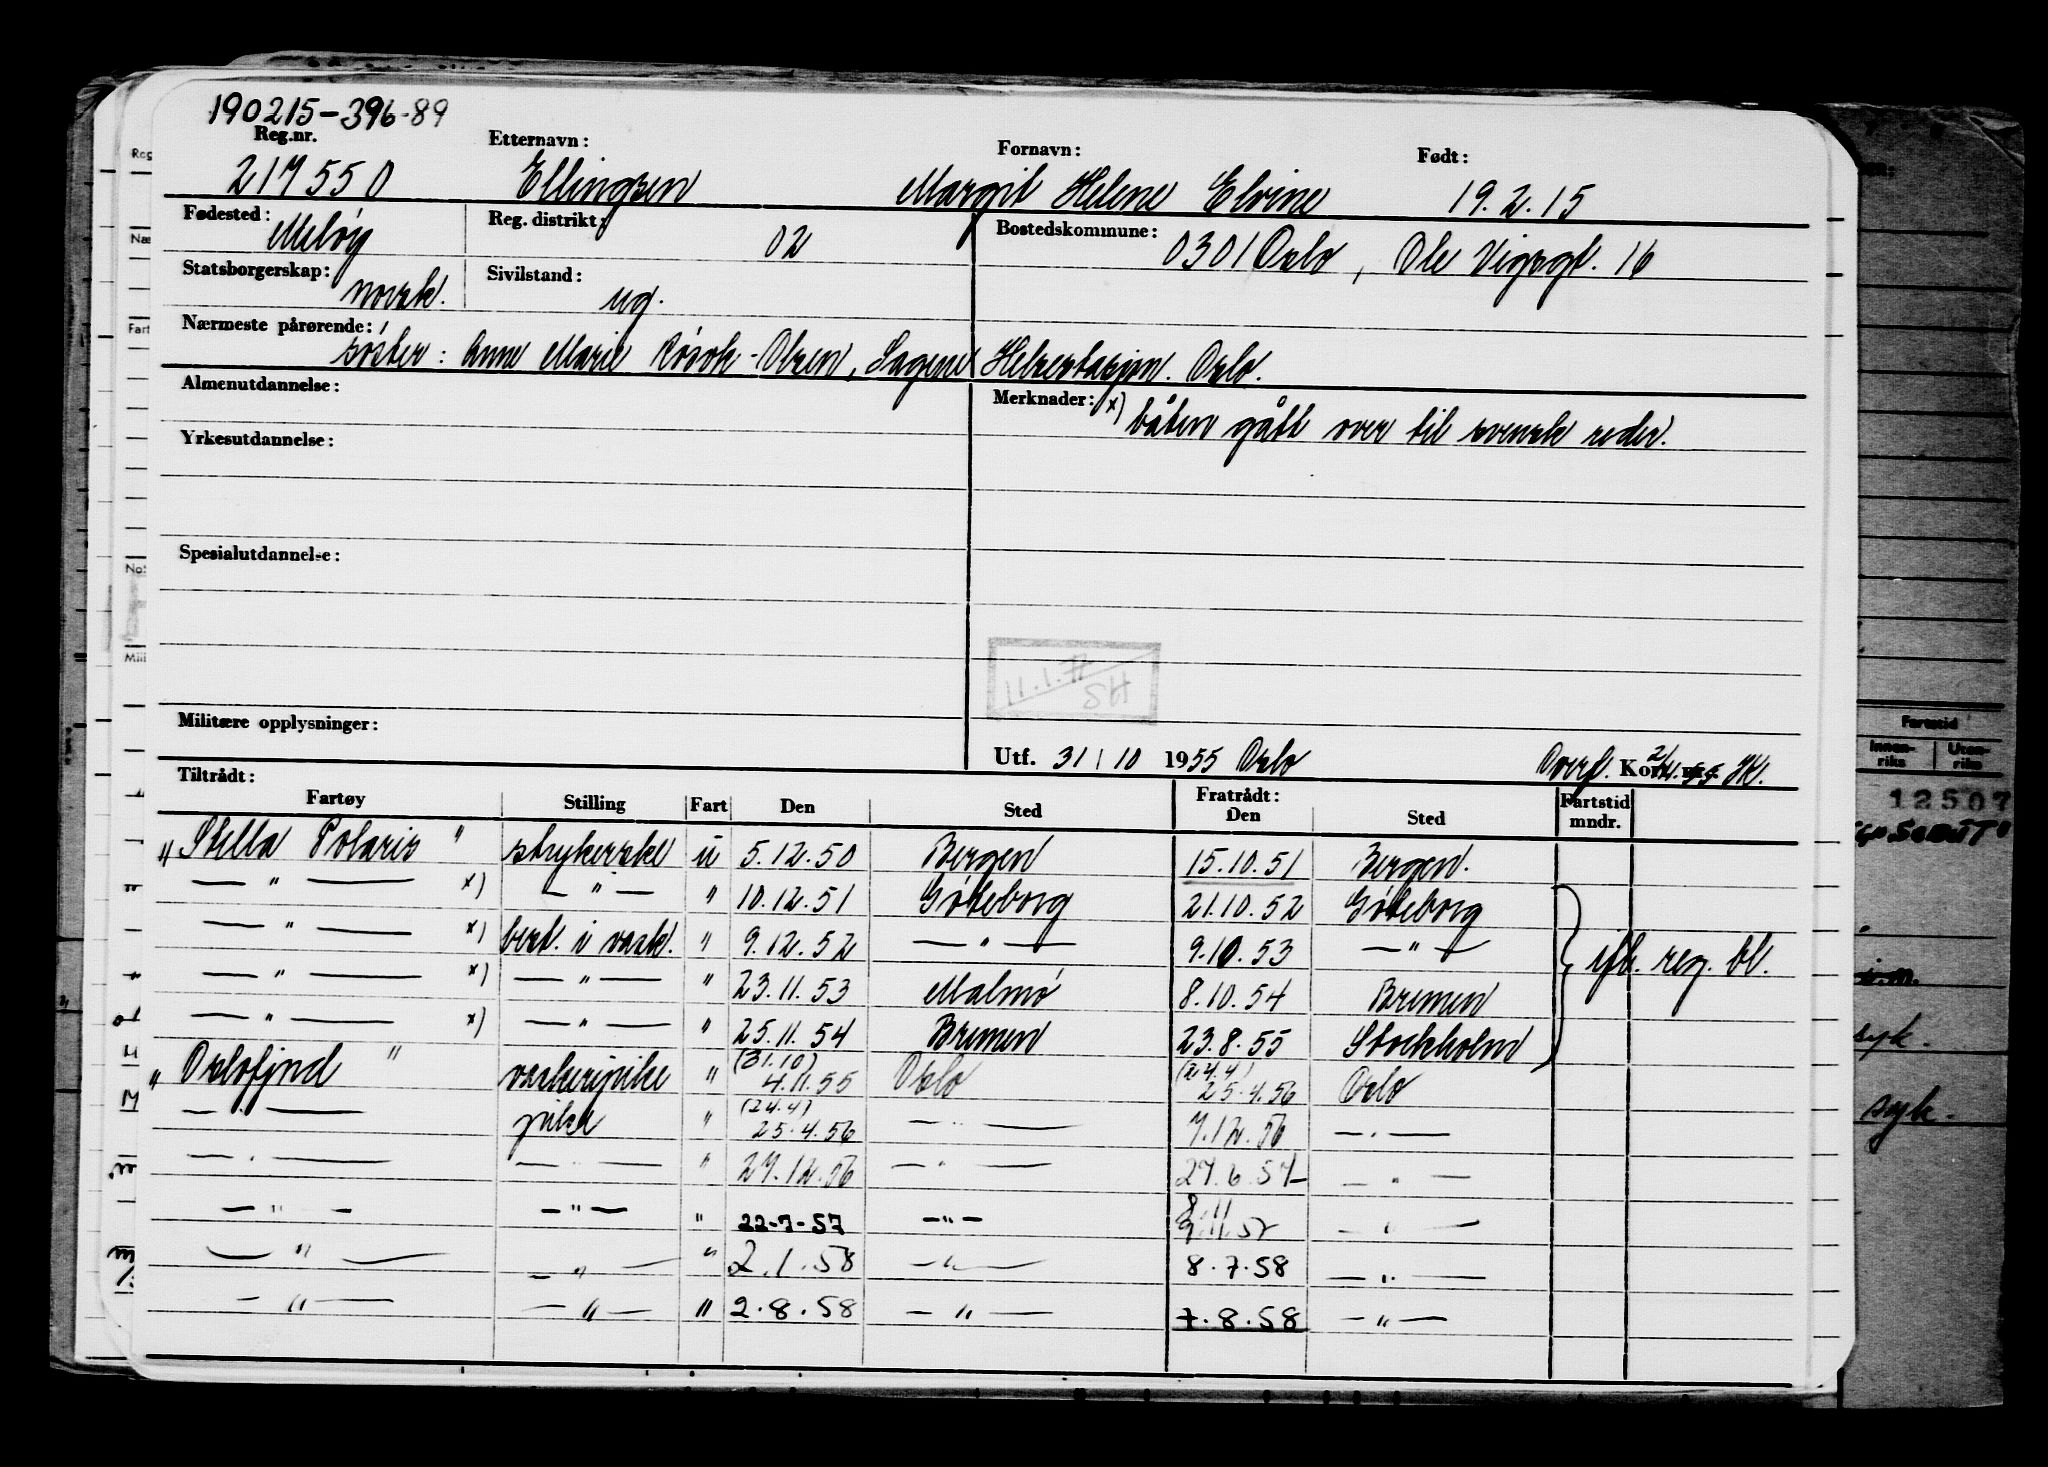 190215-396-89
Reg.nr. Etternavn: Fornavn: Født:
217550 Ellingsen Margit Helene Elvine 19.2.15
Fødested: Meløy Reg. distrikt: 02 Bostedskommune: 0301 Oslo, Ole Vigsgt. 16
Statsborgerskap: norsk. Sivilstand: ug.
Nærmeste pårørende:
søster: Anne Marie Olsen, Sagene Helsestasjon. Oslo.
Almenutdannelse: Merknader: x) båten gått over til svensk reder.
Yrkesutdannelse:
Spesialutdannelse:
11.1.77
SH
Militære opplysninger:
Utf. 31/10 1955 Oslo Overf. Kort nr.
Tiltrådt: Fratrådt:
Fartøy Stilling Fart Den Sted Den Sted Fartstid mndr.
"Stella Polaris" strykerske u 5.12.50 Bergen 15.10.51 Bergen.
— " — x) — " — " 10.12.51 Gøteborg 21.10.52 Gøteborg
— " — x) best. i vask. " 9.12.52 — " — 9.10.53 — " — ifh. reg. bl.
— " — x) — " — " 23.11.53 Malmø 8.10.54 Bremen
— " — x) — " — " 25.11.54 Bremen 23.8.55 Stockholm
"Oslofjord" vaskeripike " (31.10) 4.11.55 Oslo (24.4) 25.4.56 Oslo
— " — pike " (24.4) 25.4.56 — " — 7.12.56 — " —
— " — — " — " 27.12.56 — " — 27.6.57 — " —
— " — — " — " 22-7-57 — " — 8.11 9.11.57 — " —
— " — — " — " 2.1.58 — " — 8.7.58 — " —
— " — — " — " 2.8.58 — " — 7.8.58 — " —
Fartstid
Innen-riks Uten-riks
12507
syk.
syk.